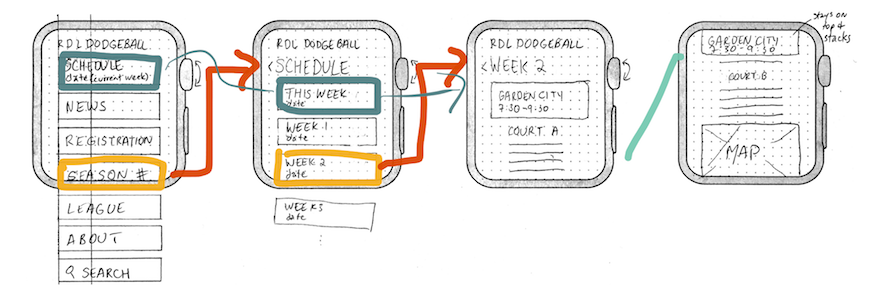 RDL DODGEBALL
SCHEDULE
date (current week)
NEWS
REGISTRATION
SEASON #
LEAGUE
ABOUT
SEARCH
RDL DODGEBALL
<SCHEDULE
THIS WEEK
date
WEEK 1
date
WEEK 2
date
WEEK 3
date
RDL DODGEBALL
<WEEK 2
GARDEN CITY
7:30-9:30
COURT A
stays on
top &
stacks
GARDEN CITY
7:30-9:30
COURT B
MAP